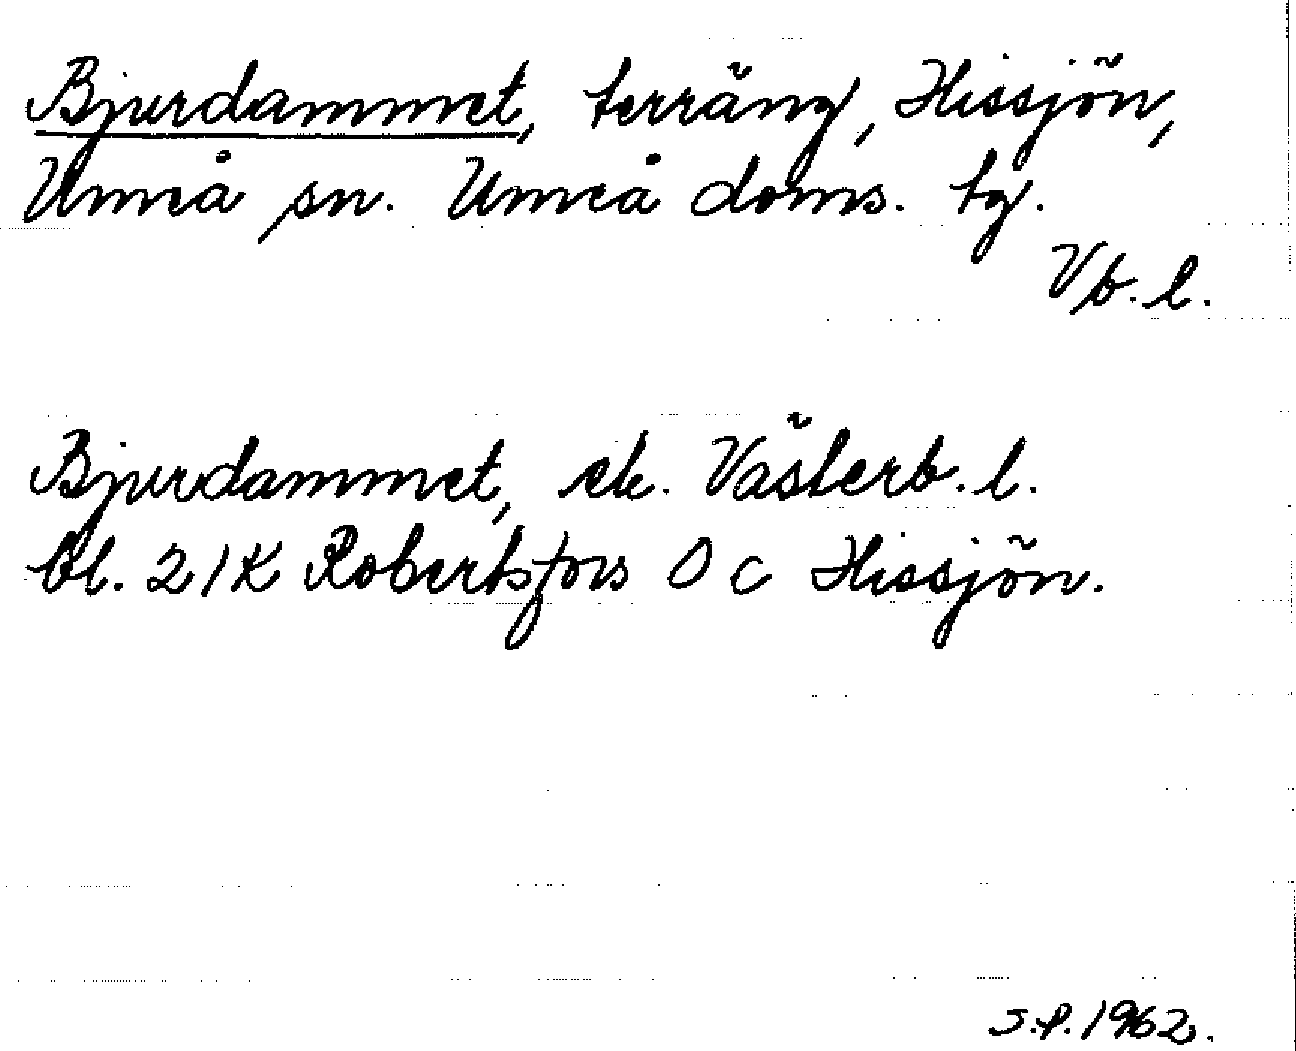 Bjurdammet, terräng, Hissjön,
Umeå sn. Umeå doms. tg.
Vb. l.
Bjurdammet, ek. Västerb. l.
bl. 21K Robertsfors O c Hissjön.
S.P. 1962.